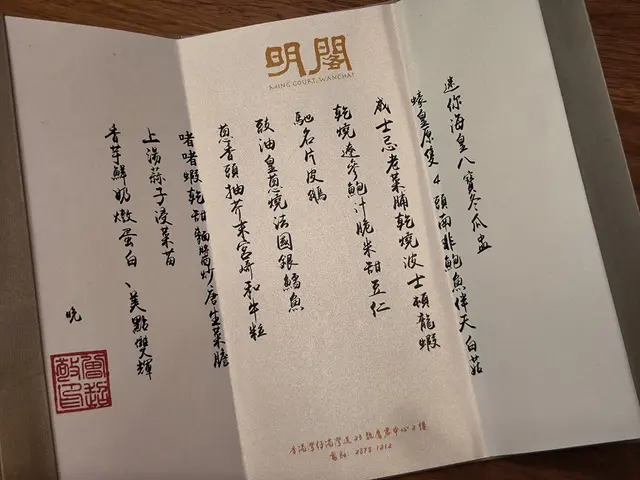 明閣
MING COURT, WANCHAI
迷你海皇八寶冬瓜盅
蠔皇原隻4頭南非鮑魚伴天白菇
威士忌老菜脯乾燒波士頓龍蝦
乾燒遼參鮑汁脆米甜豆仁
馳名片皮鴨
豉油皇蔥燒法國銀鱈魚
蔥香頭抽芥末宮崎和牛粒
啫啫蝦乾甜麵醬炒唐生菜膽
上湯蒜子浸菜苗
香芋鮮奶燉蛋白、美點雙輝
晚
香港灣仔港灣道23號鷹君中心2樓
電話: 2878 1212